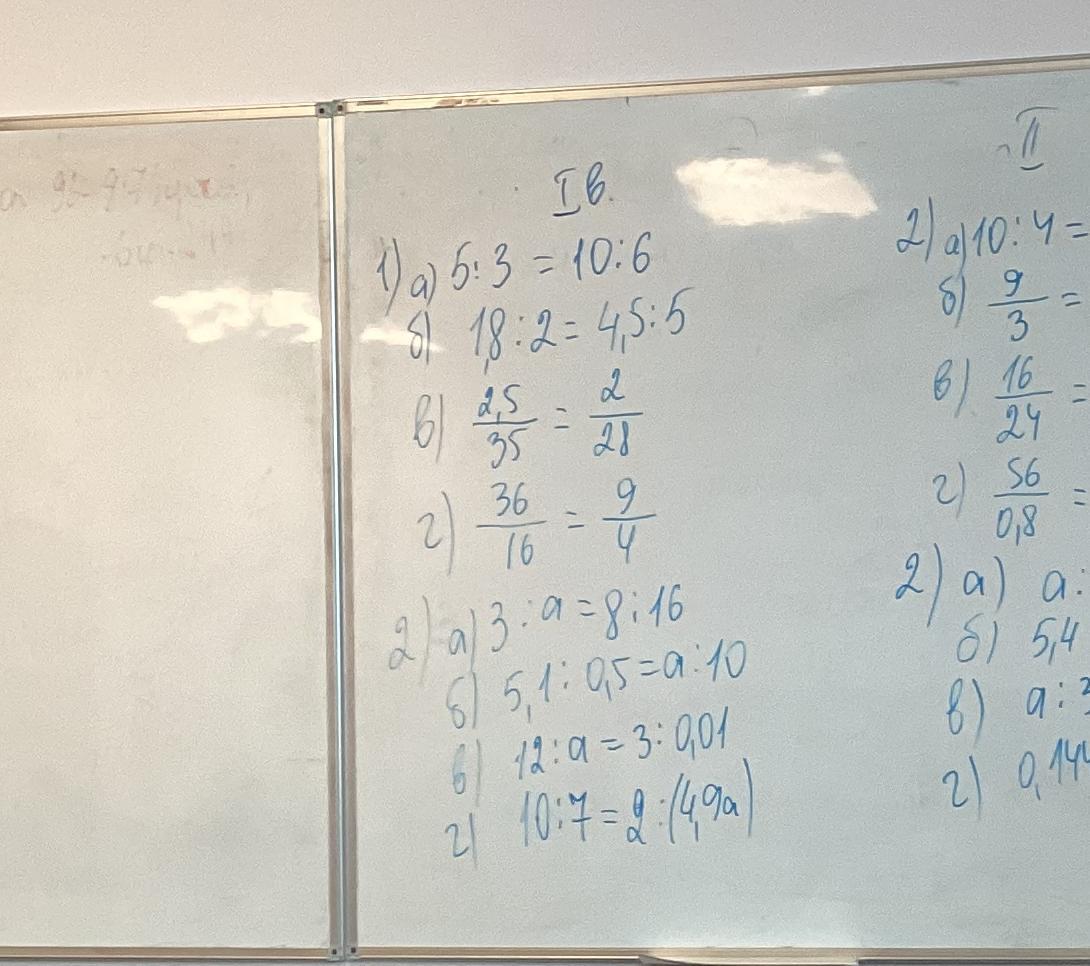 I в.
1) а) 5:3 = 10:6
б) 1,8:2 = 4,5:5
в) 2,5/35 = 2/28
г) 36/16 = 9/4
2) а) 3:a = 8:16
б) 5,1:0,5 = a:10
в) 12:a = 3:0,01
г) 10:7 = 2:(4,9a)
II
2) а) 10:4 =
б) 9/3 =
в) 16/24 =
г) 56/0,8 =
2) а) a:
б) 5,4
в) a:3
г) 0,144